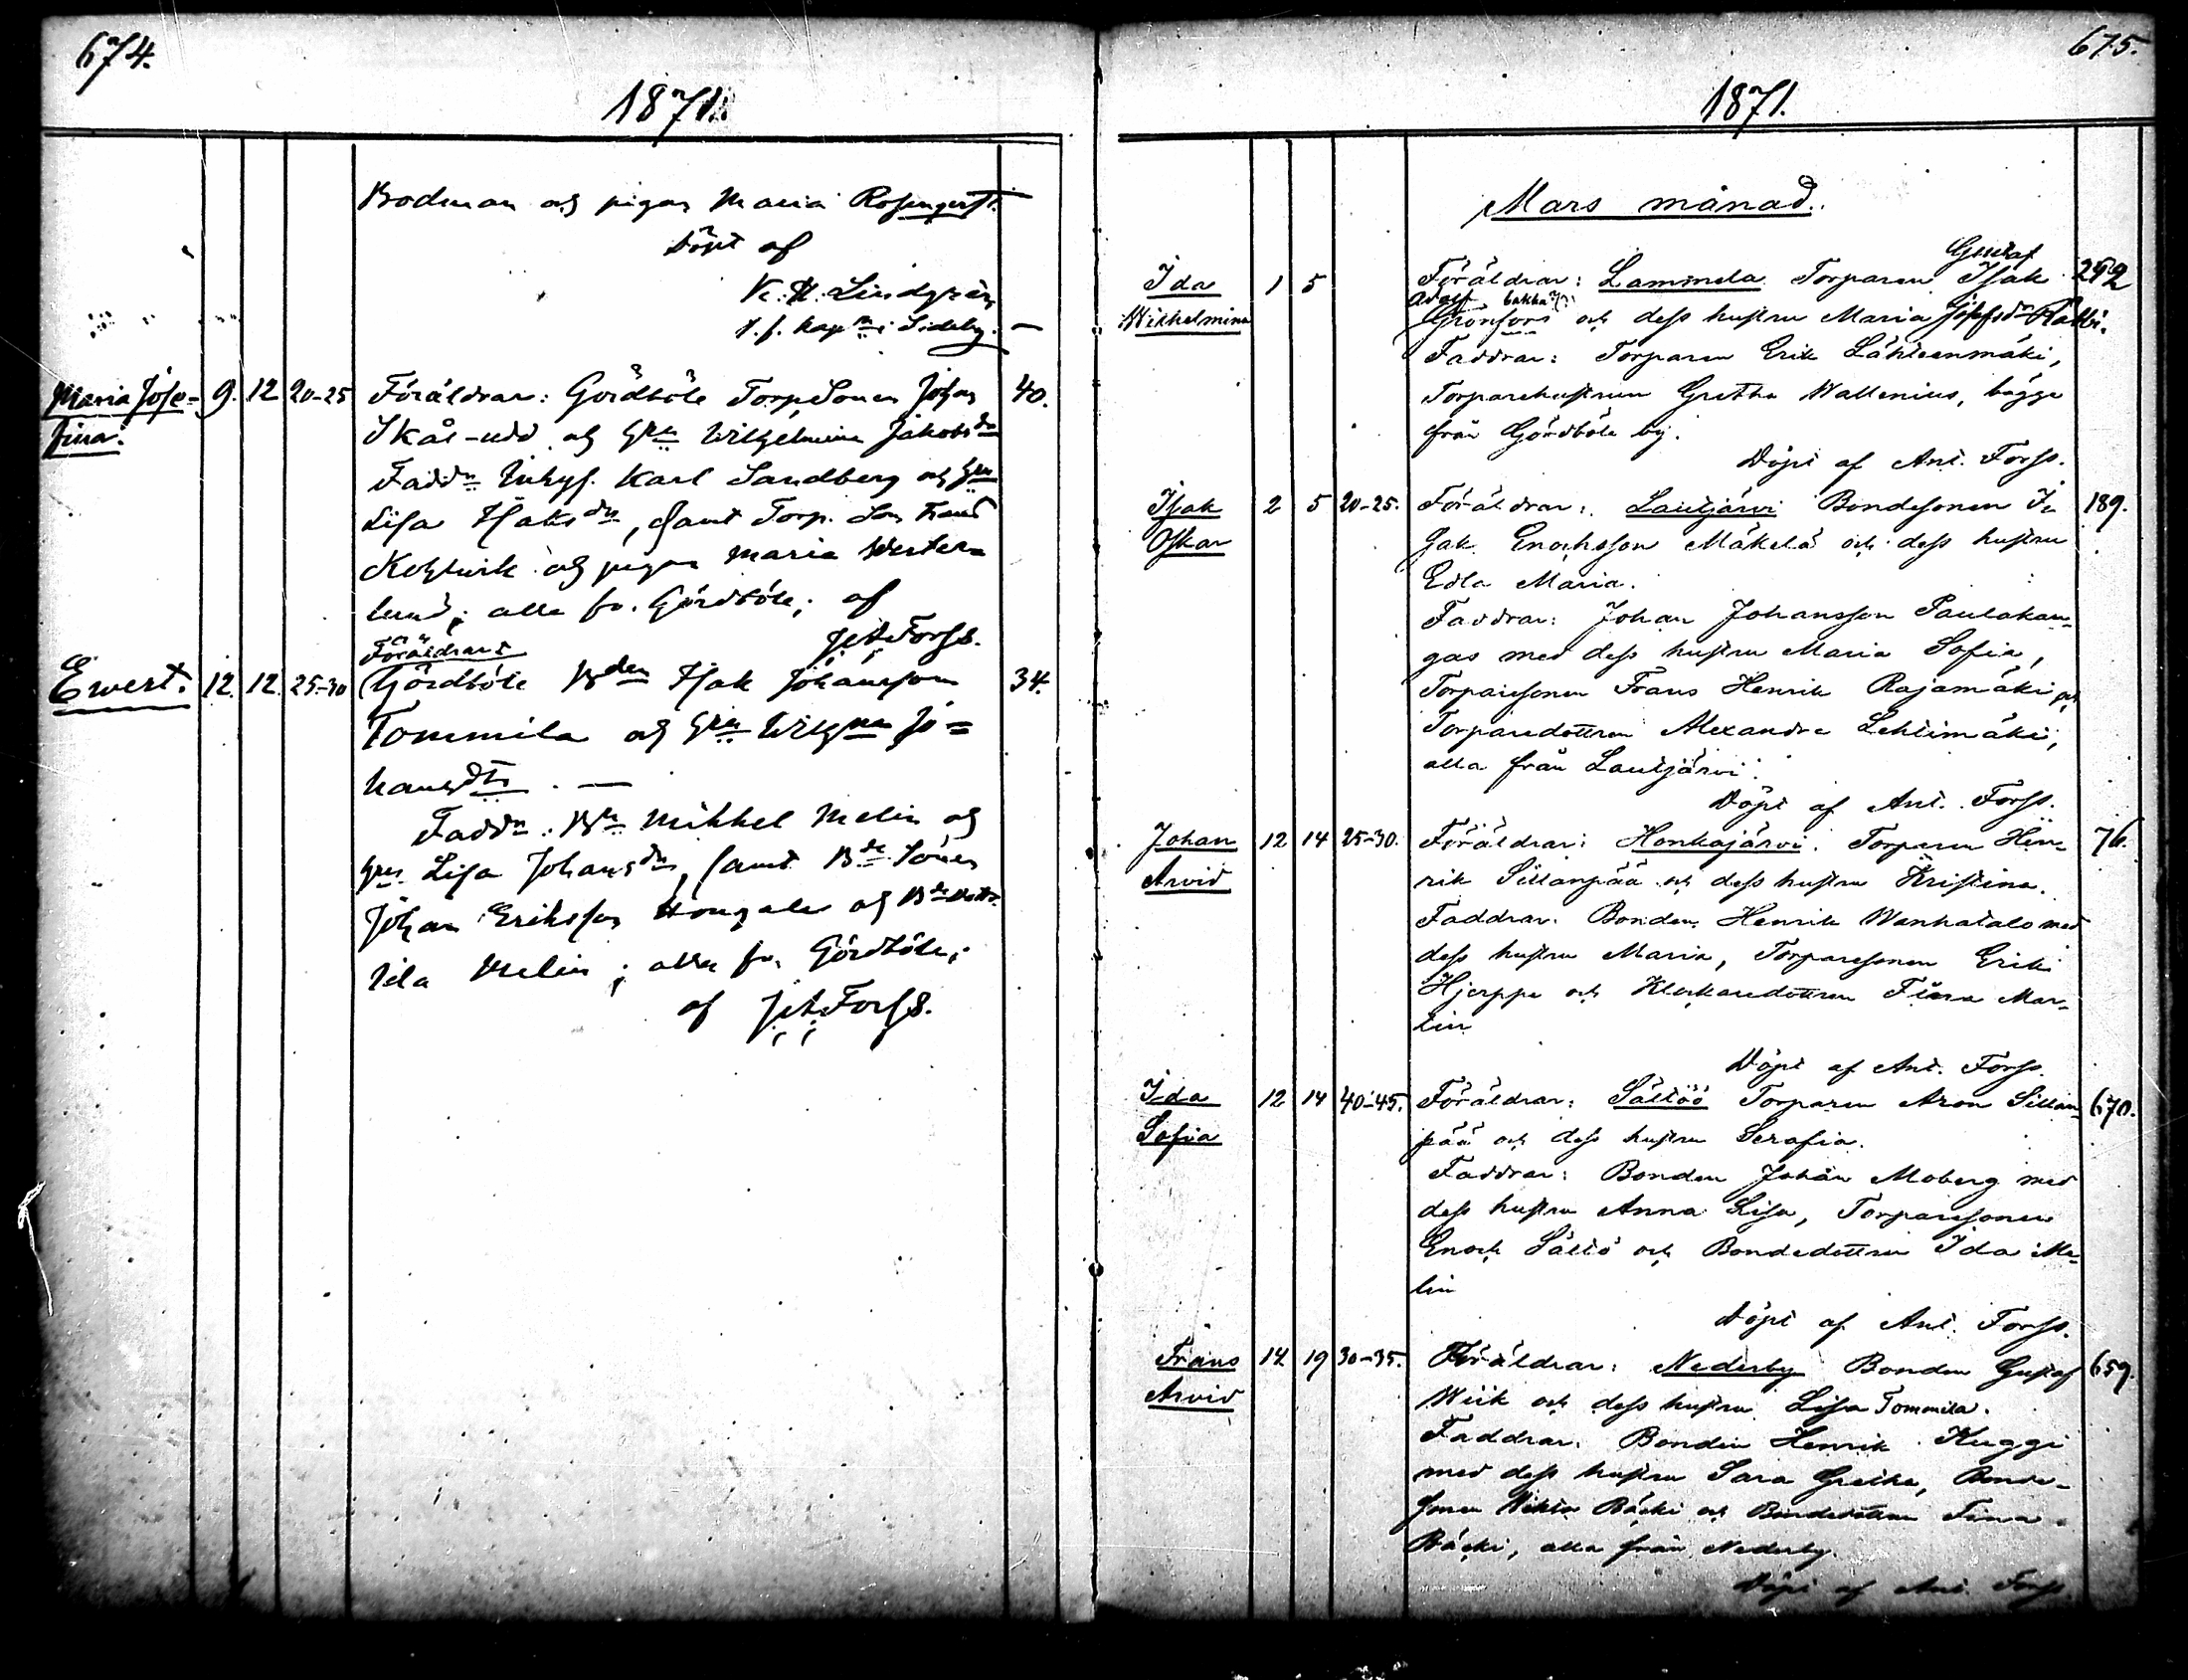 674.
1871.
Bodman och pigan Maria Rosengrst.
Döpt af
K. H. Lindgrén
t. f. kapn i Sideby. —
Maria Jose- 9. 12 20-25 Föräldrar: Gördböle Torp. Sonen Johan 40.
fina. Skål-udd och hru Wilhelmina Jakobsdr
Faddr Inhys. Karl Sandberg och hru
Lisa Isaksdr, samt Torp. Son Frans
och pigan Maria Wester-
lund; alla fr. Gördböle; af
J. A. Forss.
Föräldrar:
Ewert. 12. 12. 25-30 Gördböle Bden Isak Johansson 34.
Tommila och hru Wilhna Jo-
hansdtr. —
Faddr: Bn Mikkel Melin och
hru Lisa Johansdr, samt Bde Sonen
Johan Eriksson och Bde dottr.
Ida Melin; alla fr. Gördböle;
af J. A. Forss.
675.
1871.
Mars månad.
Gustaf
Ida 1 5 Föräldrar: Lammela Torparen Isak 292
Adolf
Wilhelmina Grönfors och dess hustru Maria Josefsdr Rabbi.
Faddrar: Torparen Erik Lähteenmäki,
Torparehustrun Gretha Wallenius, bägge
från Gördböle by.
Döpt af Ant. Forss.
Isak 2 5 20-25. Föräldrar: Lautjärvi Bondesonen I- 189.
Oskar sak Enochsson Mäkelä och dess hustru
Edla Maria.
Faddrar: Johan Johansson Paulakan-
gas med dess hustru Maria Sofia,
Torparesonen Frans Henrik Rajamäki och
Torparedottren Alexandra Lehtimäki,
alla från Lautjärvi.
Döpt af Ant. Forss.
Johan 12 14 25-30. Föräldrar: Honkajärvi. Torparen Hen- 76.
Arvid rik Sillanpää och dess hustru Kristina.
Faddrar: Bonden Henrik Wanhatalo med
dess hustru Maria, Torparesonen Erik
Hjerppe och Klockaredottren Fiina Mar-
tin
Döpt af Ant. Forss.
Ida 12 14 40-45. Föräldrar: Sältöö Torparen Aron Sillan- 670.
Sofia pää och dess hustru Serafia.
Faddrar: Bonden Johan Moberg med
dess hustru Anna Lisa, Torparesonen
Enoch Sältö och Bondedottren Ida Me-
lin
Döpt af Ant. Forss.
Frans 14 19 30-35. Föräldrar: Nederby Bonden Gustaf 659.
Arvid Wiik och dess hustru Lisa Tommila.
Faddrar: Bonden Henrik Kuggi
med dess hustru Sara Gretha, Bonde-
sonen Viktor Bäcki och Bondedottren Fina
Bäcki, alla från Nederby.
Döpt af Ant. Forss